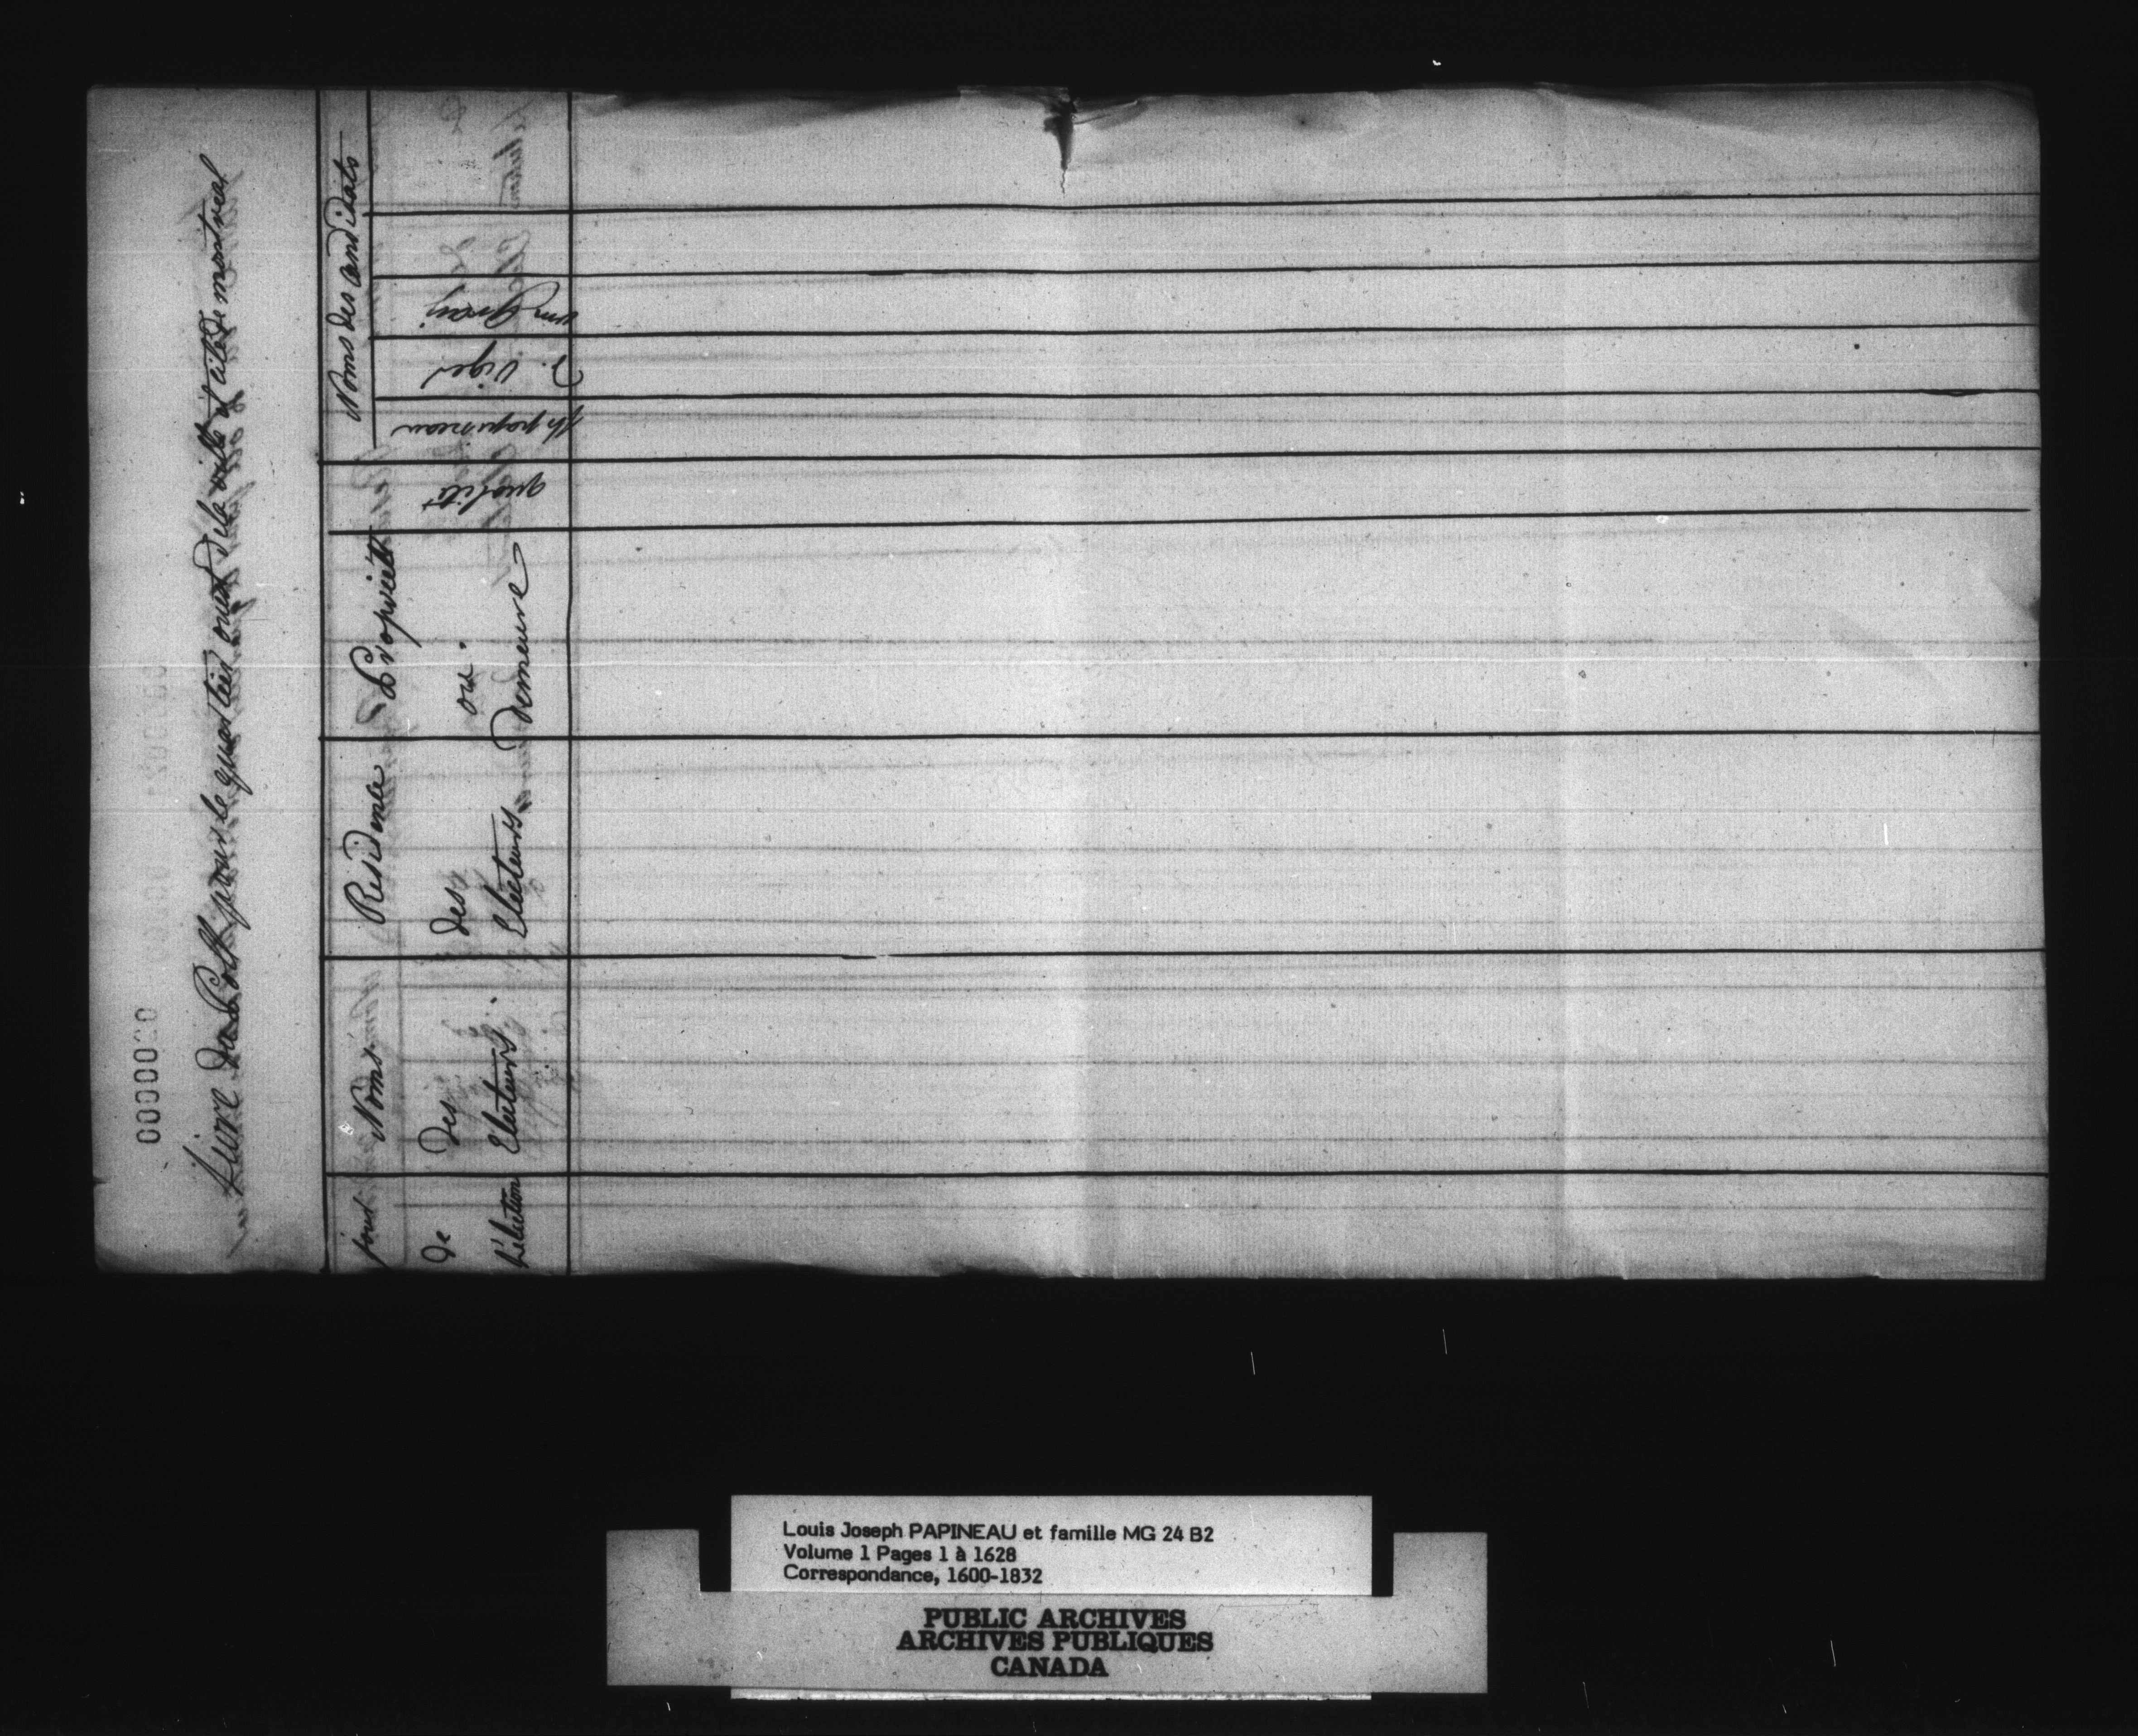 Livre du Poll pour le quartier ouest de la ville et cité de montreal
jour de l'élection
Noms des Electeurs.
Residence des Electeurs
Propriétté ou demeure
qualité
Noms des Candidats
papineau
D. Viger
Wm Gray
Louis Joseph PAPINEAU et famille MG 24 B2
Volume 1 Pages 1 à 1628
Correspondance, 1600-1832
PUBLIC ARCHIVES
ARCHIVES PUBLIQUES
CANADA